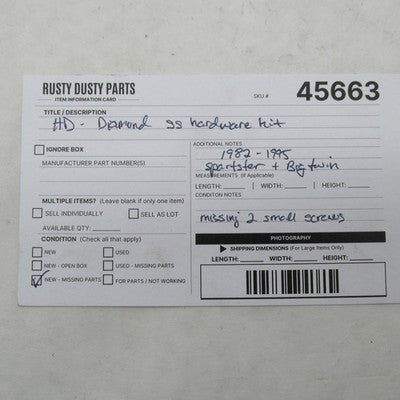 RUSTY DUSTY PARTS
ITEM INFORMATION CARD
SKU # 45663
TITLE / DESCRIPTION
HD - Diamond ss hardware kit
IGNORE BOX
MANUFACTURER PART NUMBER(S)
ADDITIONAL NOTES
1982 - 1995
sportster + Big twin
MEASUREMENTS (If Applicable)
LENGTH: WIDTH: HEIGHT:
MULTIPLE ITEMS? (Leave blank if only one item)
SELL INDIVIDUALLY SELL AS LOT
AVAILABLE QTY:
CONDITON NOTES
missing 2 small screws
CONDITION (Check all that apply)
NEW USED
NEW - OPEN BOX USED - MISSING PARTS
NEW - MISSING PARTS FOR PARTS / NOT WORKING
PHOTOGRAPHY
SHIPPING DIMENSIONS (For Large Items Only)
LENGTH: WIDTH: HEIGHT: